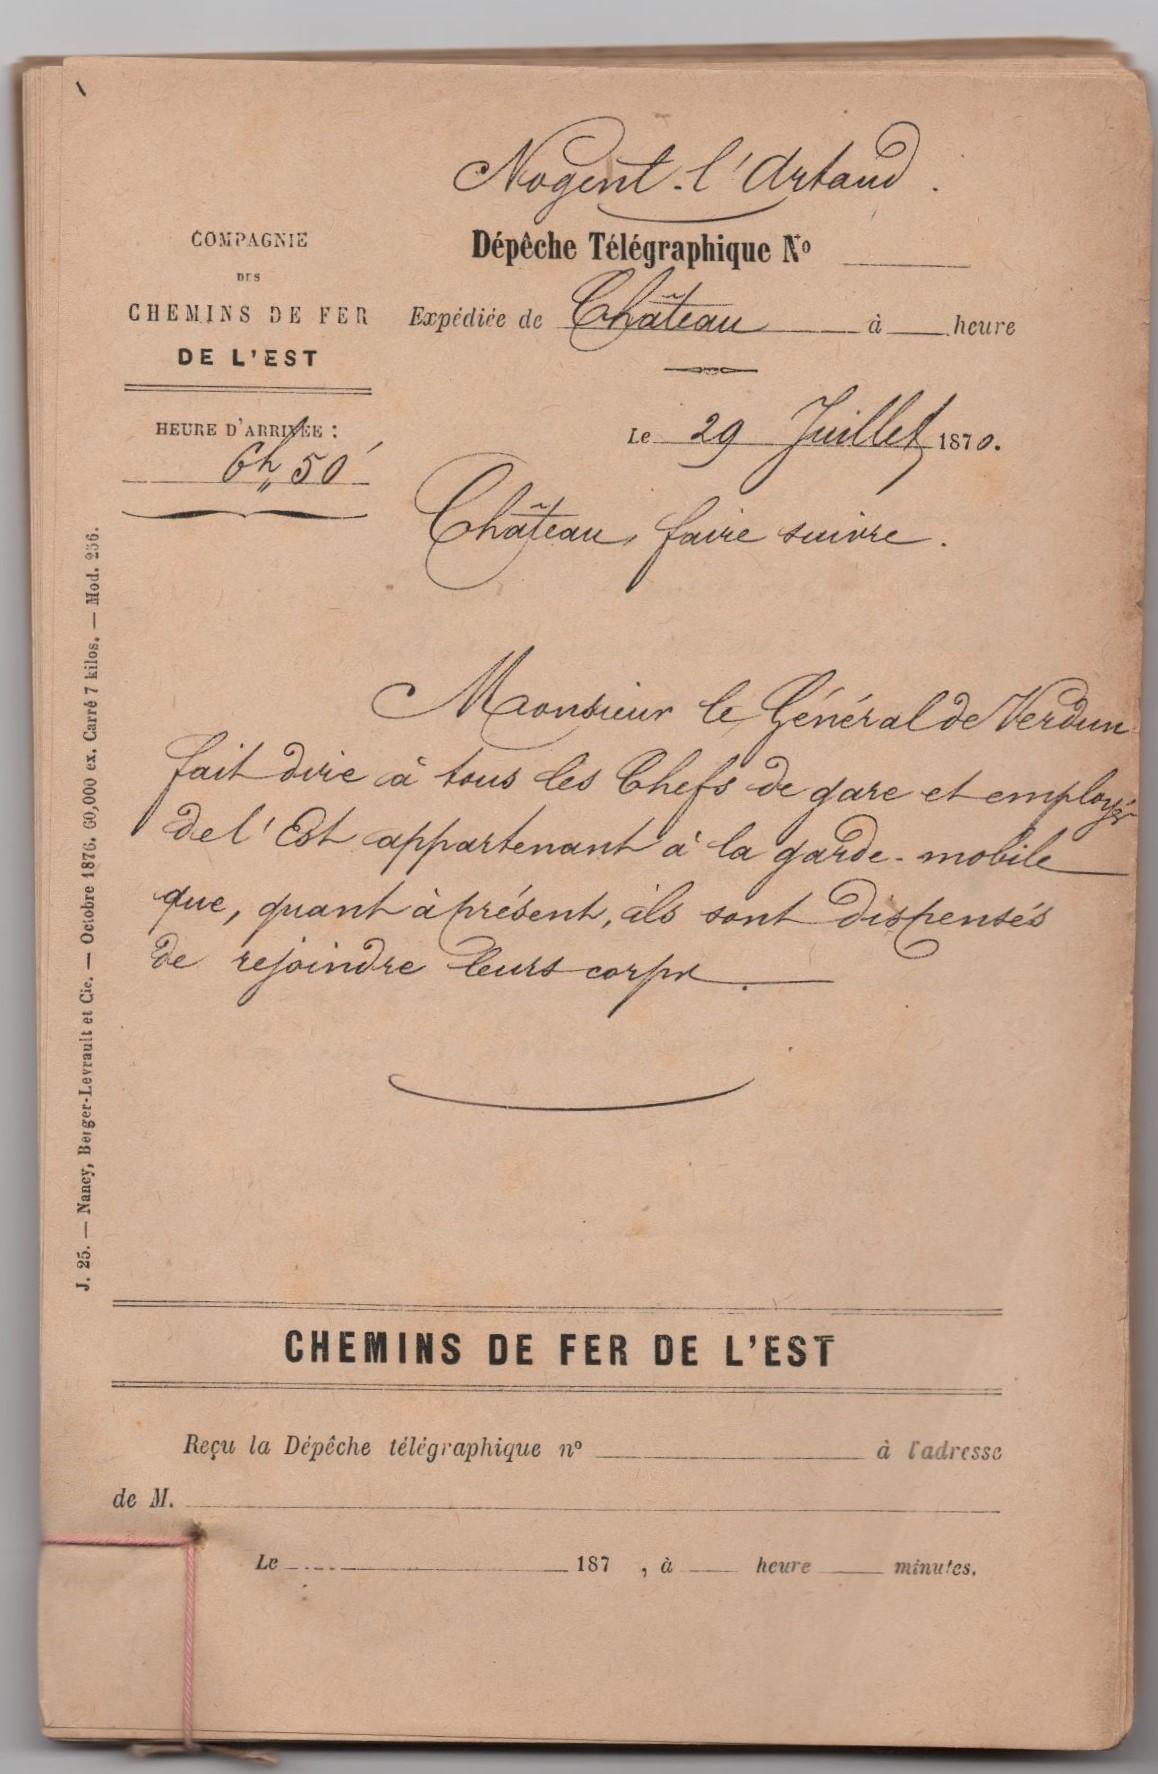 Nogent-l'Artaud.
COMPAGNIE
DES
CHEMINS DE FER
DE L'EST
Dépêche Télégraphique Nº
Expédiée de Château à heure
HEURE D'ARRIVÉE :
6h 50'
Le 29 Juillet 1870.
Château, faire suivre.
Monsieur le Général de Verdun
fait dire à tous les Chefs de gare et employés
de l'Est appartenant à la garde-mobile
que, quant à présent, ils sont dispensés
de rejoindre leurs corps.
J. 25. — Nancy, Berger-Levrault et Cie. — Octobre 1876. 60,000 ex. Carré 7 kilos. — Mod. 256.
CHEMINS DE FER DE L'EST
Reçu la Dépêche télégraphique nº à l'adresse
de M.
Le 187 , à heure minutes.